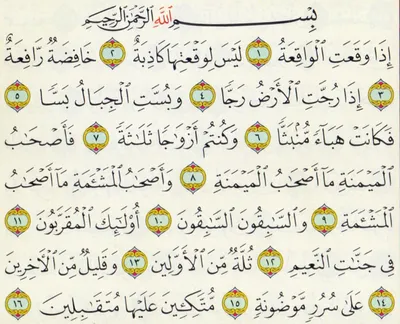 بِسْمِ اللَّهِ الرَّحْمَٰنِ الرَّحِيمِ
إِذَا وَقَعَتِ الْوَاقِعَةُ ١ لَيْسَ لِوَقْعَتِهَا كَاذِبَةٌ ٢ خَافِضَةٌ رَّافِعَةٌ
٣ إِذَا رُجَّتِ الْأَرْضُ رَجًّا ٤ وَبُسَّتِ الْجِبَالُ بَسًّا ٥
فَكَانَتْ هَبَاءً مُّنبَثًّا ٦ وَكُنتُمْ أَزْوَاجًا ثَلَاثَةً ٧ فَأَصْحَابُ
الْمَيْمَنَةِ مَا أَصْحَابُ الْمَيْمَنَةِ ٨ وَأَصْحَابُ الْمَشْئَمَةِ مَا أَصْحَابُ
الْمَشْئَمَةِ ٩ وَالسَّابِقُونَ السَّابِقُونَ ١٠ أُولَٰئِكَ الْمُقَرَّبُونَ ١١
فِي جَنَّاتِ النَّعِيمِ ١٢ ثُلَّةٌ مِّنَ الْأَوَّلِينَ ١٣ وَقَلِيلٌ مِّنَ الْآخِرِينَ
١٤ عَلَىٰ سُرُرٍ مَّوْضُونَةٍ ١٥ مُّتَّكِئِينَ عَلَيْهَا مُتَقَابِلِينَ ١٦